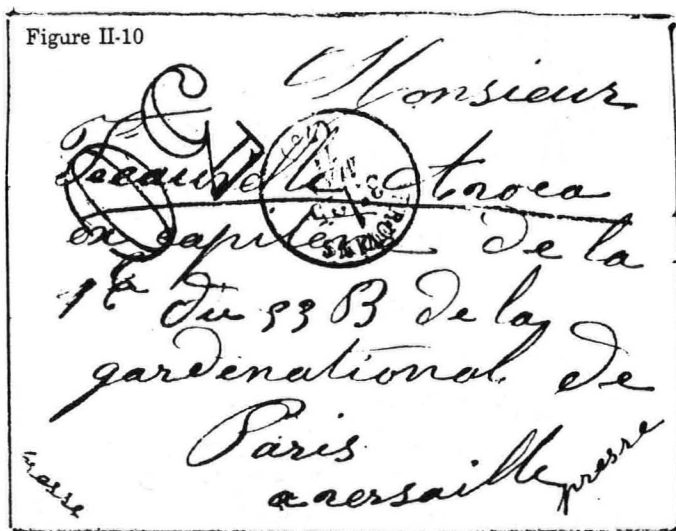 Figure II-10
Monsieur
ex capiténe de la
1re du 33 B de la
gardenational de
Paris
a versaille
presse
presse